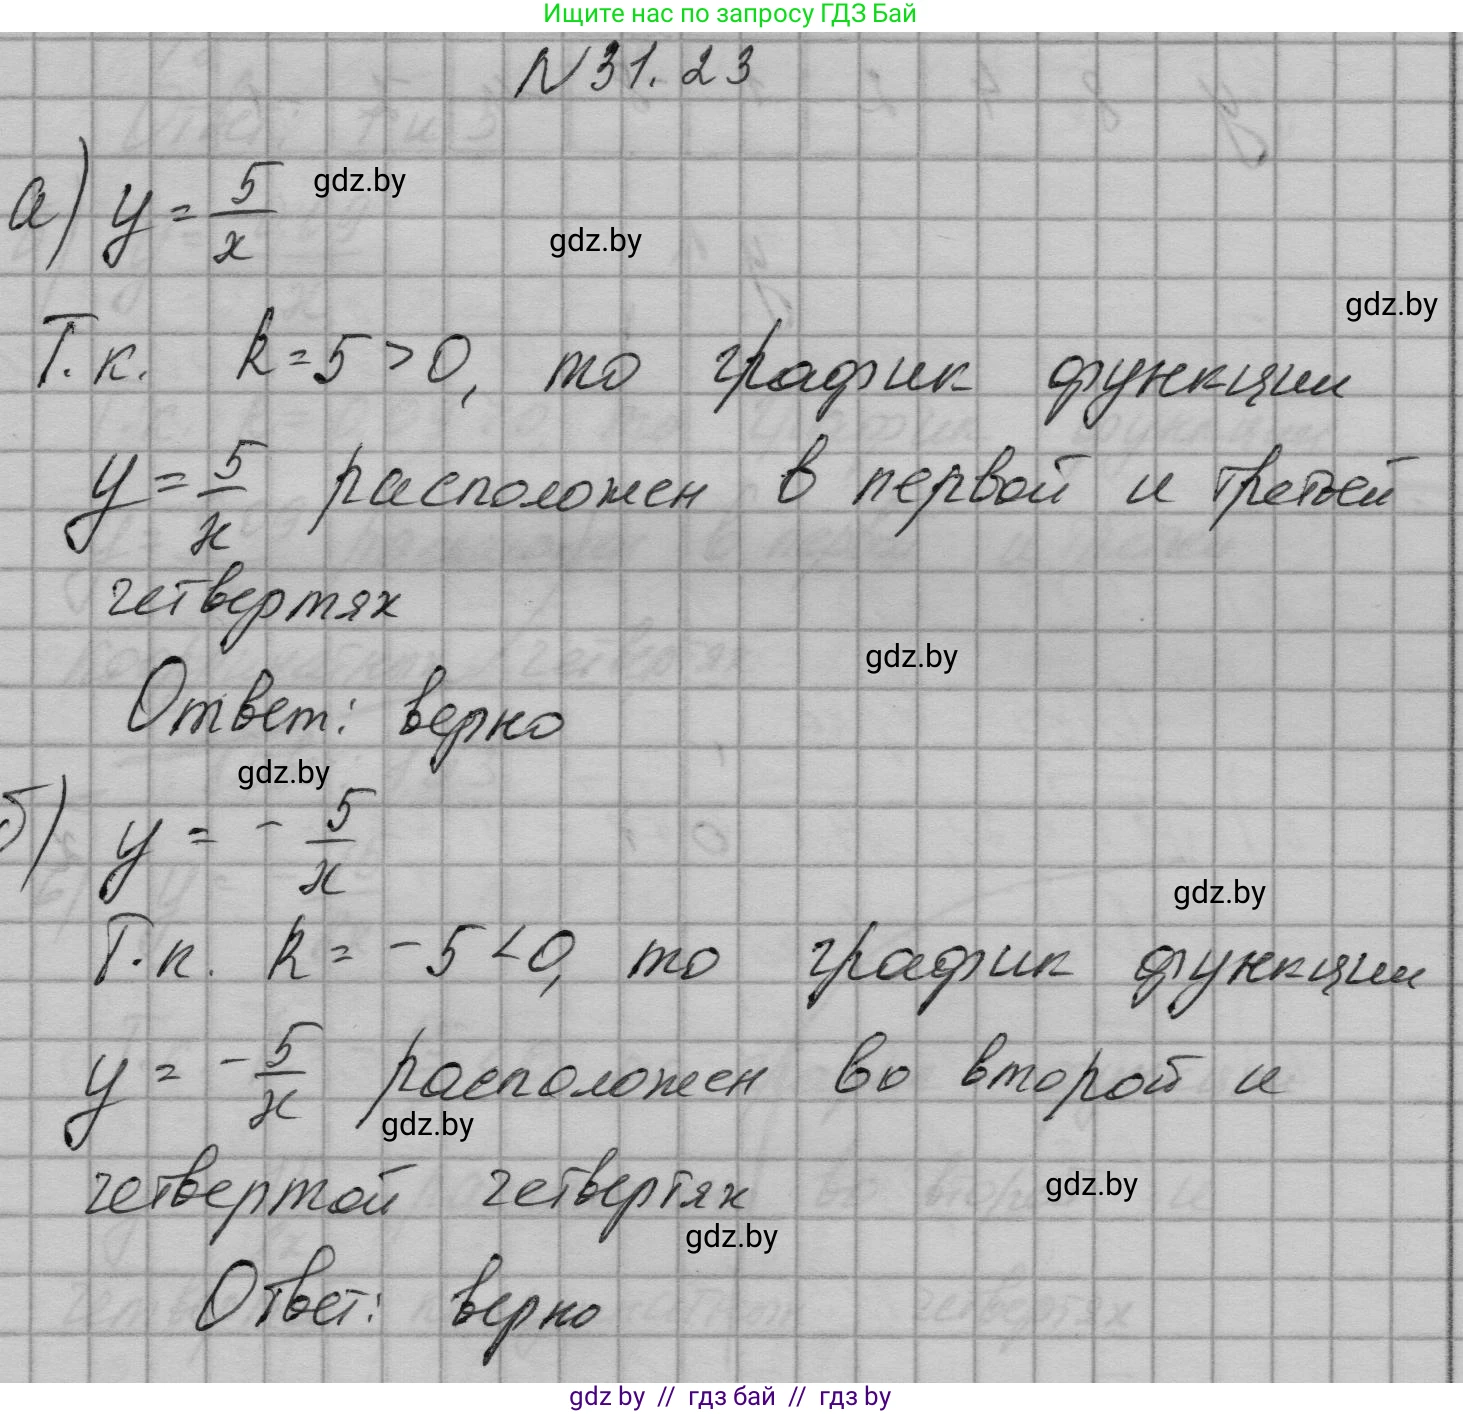 Ищите нас по запросу ГДЗ Бай
N31.23
а) y = 5/x
gdz.by
gdz.by
gdz.by
Т.к. k=5>0, то график функции
y = 5/x расположен в первой и третьей
четвертях
gdz.by
Ответ: верно
gdz.by
б) y = - 5/x
gdz.by
Т.к. k = -5<0, то график функции
y = - 5/x расположен во второй и
gdz.by
четвертой четвертях
gdz.by
gdz.by
Ответ: верно
gdz by // гдз бай // гдз by